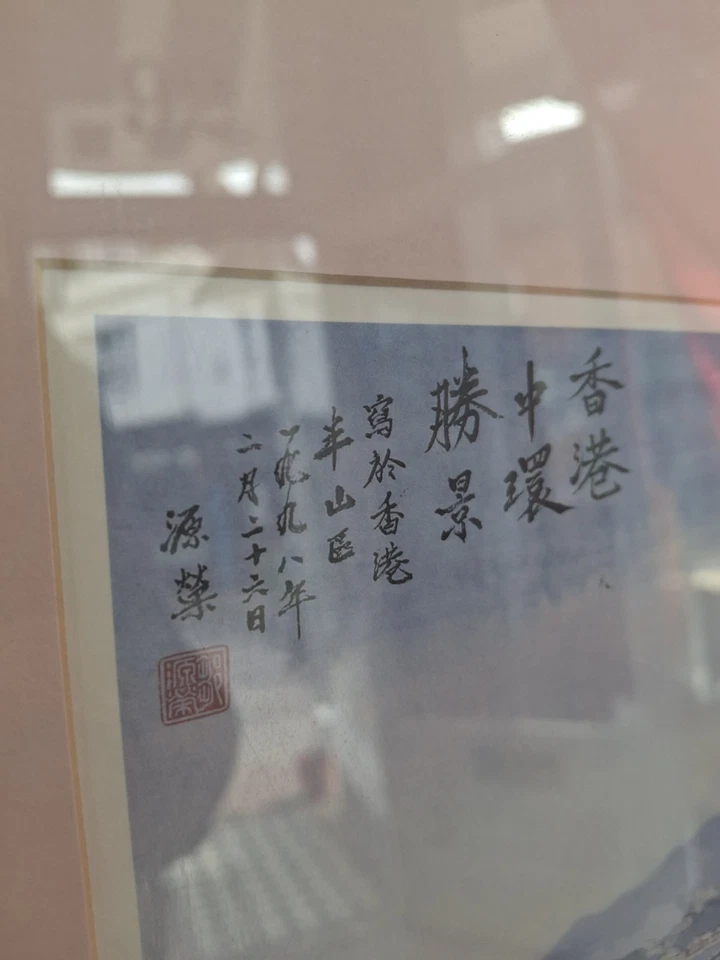 香港
中環
勝景
寫於香港
半山區
一九九八年
二月二十六日
源榮